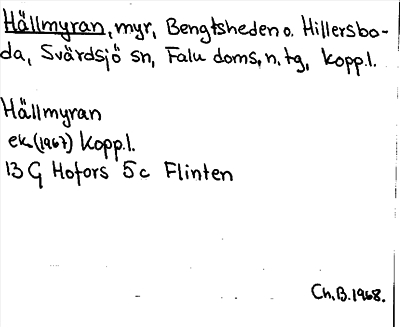 Hällmyran, myr, Bengtsheden o. Hillersbo-
da, Svärdsjö sn, Falu doms. n. tg, Kopp.l.
Hällmyran
ek (1967) Kopp.l.
13 G Hofors 5c Flinten
Ch. B. 1968.